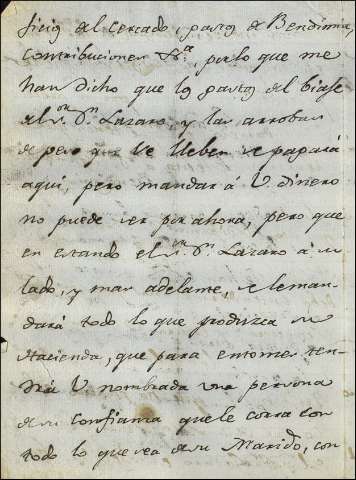 ficio del Cercado, gastos de Bendimia,
Contribuciones &.ª, por lo que me
han dicho que los gastos del biage
del s.ᵒʳ Dⁿ Lazaro, y las arrobas
de peso que lleben se pagará
aqui, pero mandar á V. dinero
no puede ser por ahora, pero que
en estando el s.ᵒʳ Dⁿ Lazaro á su
lado, y mas adelante, se leman-
dará todo lo que produzca su
Hacienda, que para entonces ten-
drá V. nombrada una persona
de su confianza que le corra con
todo lo que sea de su Marido, con